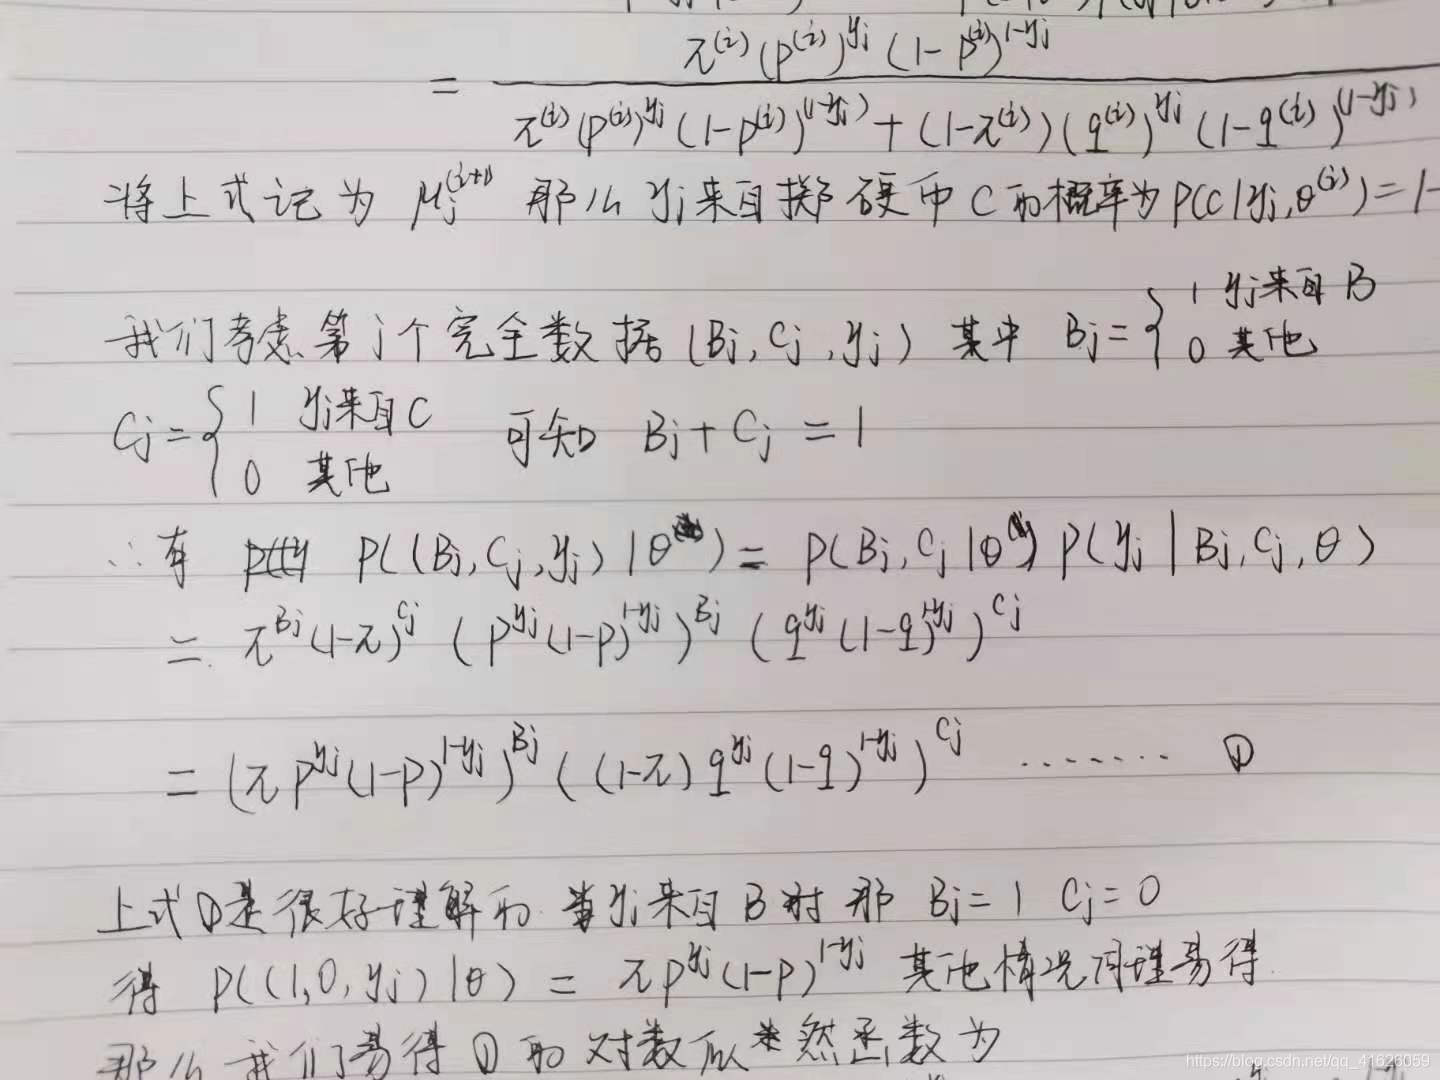 π^(i) (p^(i))^yj (1-p^(i))^1-yj
= ―――
π^(i) (p^(i))^yj (1-p^(i))^(1-yj) + (1-π^(i)) (q^(i))^yj (1-q^(i))^(1-yj)
将上式记为 μj^(i+1) 那么 yj来自掷硬币C的概率为 P(C|yj,θ^(i)) = 1-
我们考虑第j个完全数据 (Bj, Cj, yj) 其中 Bj = { 1 yj来自B
0 其他
Cj = { 1 yj来自C
0 其他 可知 Bj + Cj = 1
∴有 P((Bj, Cj, yj) | θ) = P(Bj, Cj | θ) P(yj | Bj, Cj, θ)
= π^Bj (1-π)^Cj (p^yj (1-p)^1-yj)^Bj (q^yj (1-q)^1-yj)^Cj
= (π p^yj (1-p)^1-yj)^Bj ((1-π) q^yj (1-q)^1-yj)^Cj ······· ①
上式①是很好理解的 当yj来自B时 那 Bj=1 Cj=0
得 P((1,0,yj)|θ) = π p^yj (1-p)^1-yj 其他情况同理易得
那么我们易得①的对数似然函数为
https://blog.csdn.net/qq_41626059